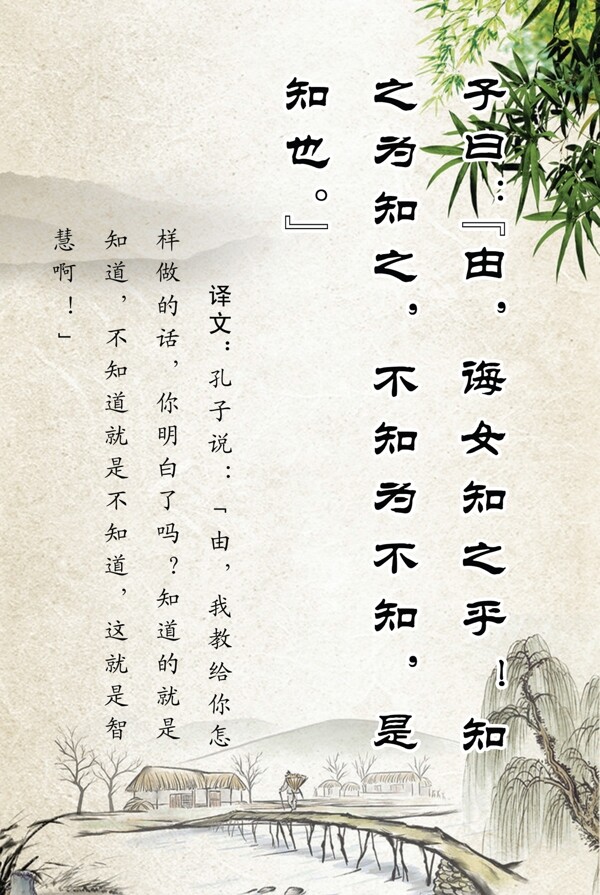 子曰：『由，诲女知之乎！知
之为知之，不知为不知，是
知也。』
译文：孔子说：「由，我教给你怎
样做的话，你明白了吗？知道的就是
知道，不知道就是不知道，这就是智
慧啊！」